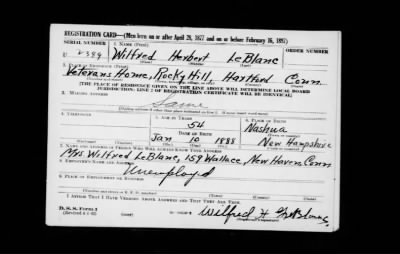 REGISTRATION CARD—(Men born on or after April 28, 1877 and on or before February 16, 1897)
SERIAL NUMBER 1. NAME (Print) ORDER NUMBER
U 2389 Wilfred Herbert LeBlanc
2. PLACE OF RESIDENCE (Print)
Veterans Home, Rocky Hill, Hartford Conn.
[THE PLACE OF RESIDENCE GIVEN ON THE LINE ABOVE WILL DETERMINE LOCAL BOARD
JURISDICTION; LINE 2 OF REGISTRATION CERTIFICATE WILL BE IDENTICAL]
3. MAILING ADDRESS
Same
4. TELEPHONE 5. AGE IN YEARS 6. PLACE OF BIRTH
54 Nashua
DATE OF BIRTH
Jan 10 1888 New Hampshire
7. NAME AND ADDRESS OF PERSON WHO WILL ALWAYS KNOW YOUR ADDRESS
Mrs Wilfred LeBlanc, 159 Wallace, New Haven, Conn
8. EMPLOYER'S NAME AND ADDRESS
Unemployd
9. PLACE OF EMPLOYMENT OR BUSINESS
I AFFIRM THAT I HAVE VERIFIED ABOVE ANSWERS AND THAT THEY ARE TRUE.
D. S. S. Form 1
Wilfred H